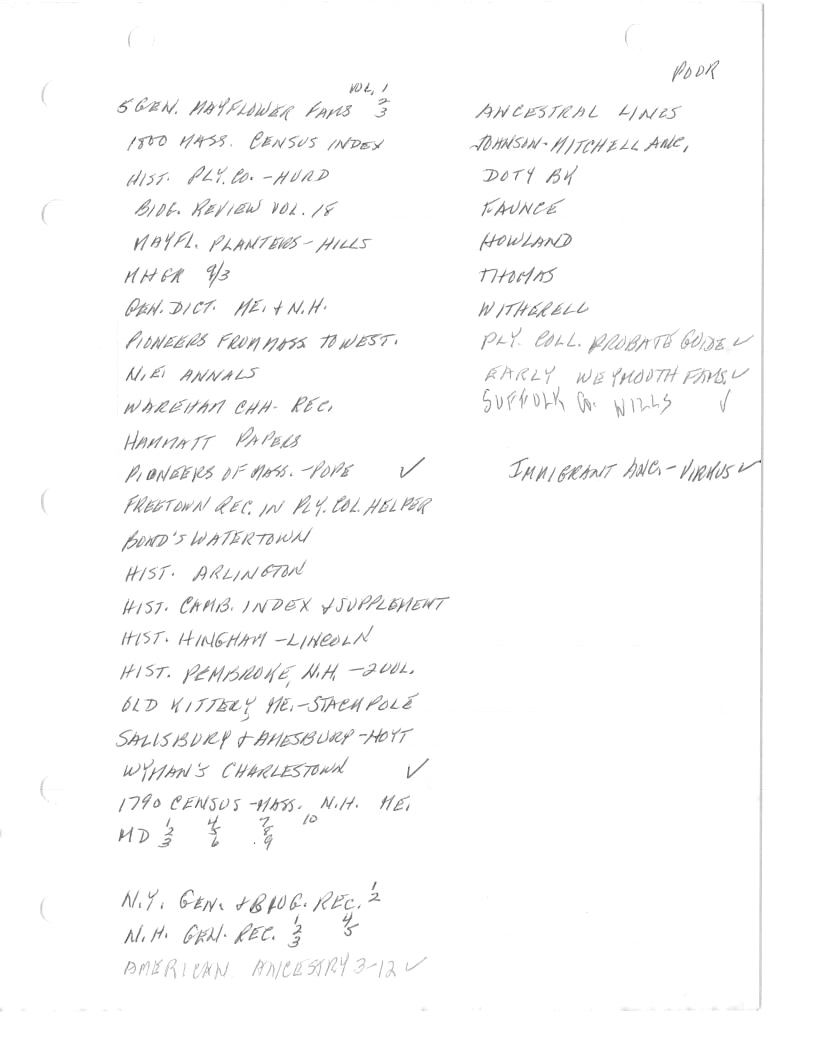 POOR
VOL. 1
5 GEN. MAYFLOWER FAMS 2
3
1800 MASS. CENSUS INDEX
HIST. PLY. CO. - HURD
BIOG. REVIEW VOL. 18
MAYFL. PLANTERS - HILLS
MHGR 9/3
GEN. DICT. ME. + N.H.
PIONEERS FROM MASS TO WEST.
N.E. ANNALS
WAREHAM CHH. REC.
HAMMATT PAPERS
PIONEERS OF MASS. - POPE ✓
FREETOWN REC. IN PLY. COL. HELPER
BOND'S WATERTOWN
HIST. ARLINGTON
HIST. CAMB. INDEX + SUPPLEMENT
HIST. HINGHAM - LINCOLN
HIST. PEMBROKE, N.H. - 2 VOL.
OLD KITTERY, ME. - STACKPOLE
SALISBURY + AMESBURY - HOYT
WYMAN'S CHARLESTOWN ✓
1790 CENSUS - MASS. N.H. ME.
MD 1 2 3 4 5 6 7 8 9 10
N.Y. GEN. + BIOG. REC. 1 2
N.H. GEN. REC. 1 2 3 4 5
AMERICAN ANCESTRY 3-12 ✓
ANCESTRAL LINES
JOHNSON-MITCHELL ANC.
DOTY BK
FAUNCE
HOWLAND
THOMAS
WITHERELL
PLY. COLL. PROBATE GUIDE ✓
EARLY WEYMOUTH FAMS. ✓
SUFFOLK CO. WILLS ✓
IMMIGRANT ANC. - VIRKUS ✓